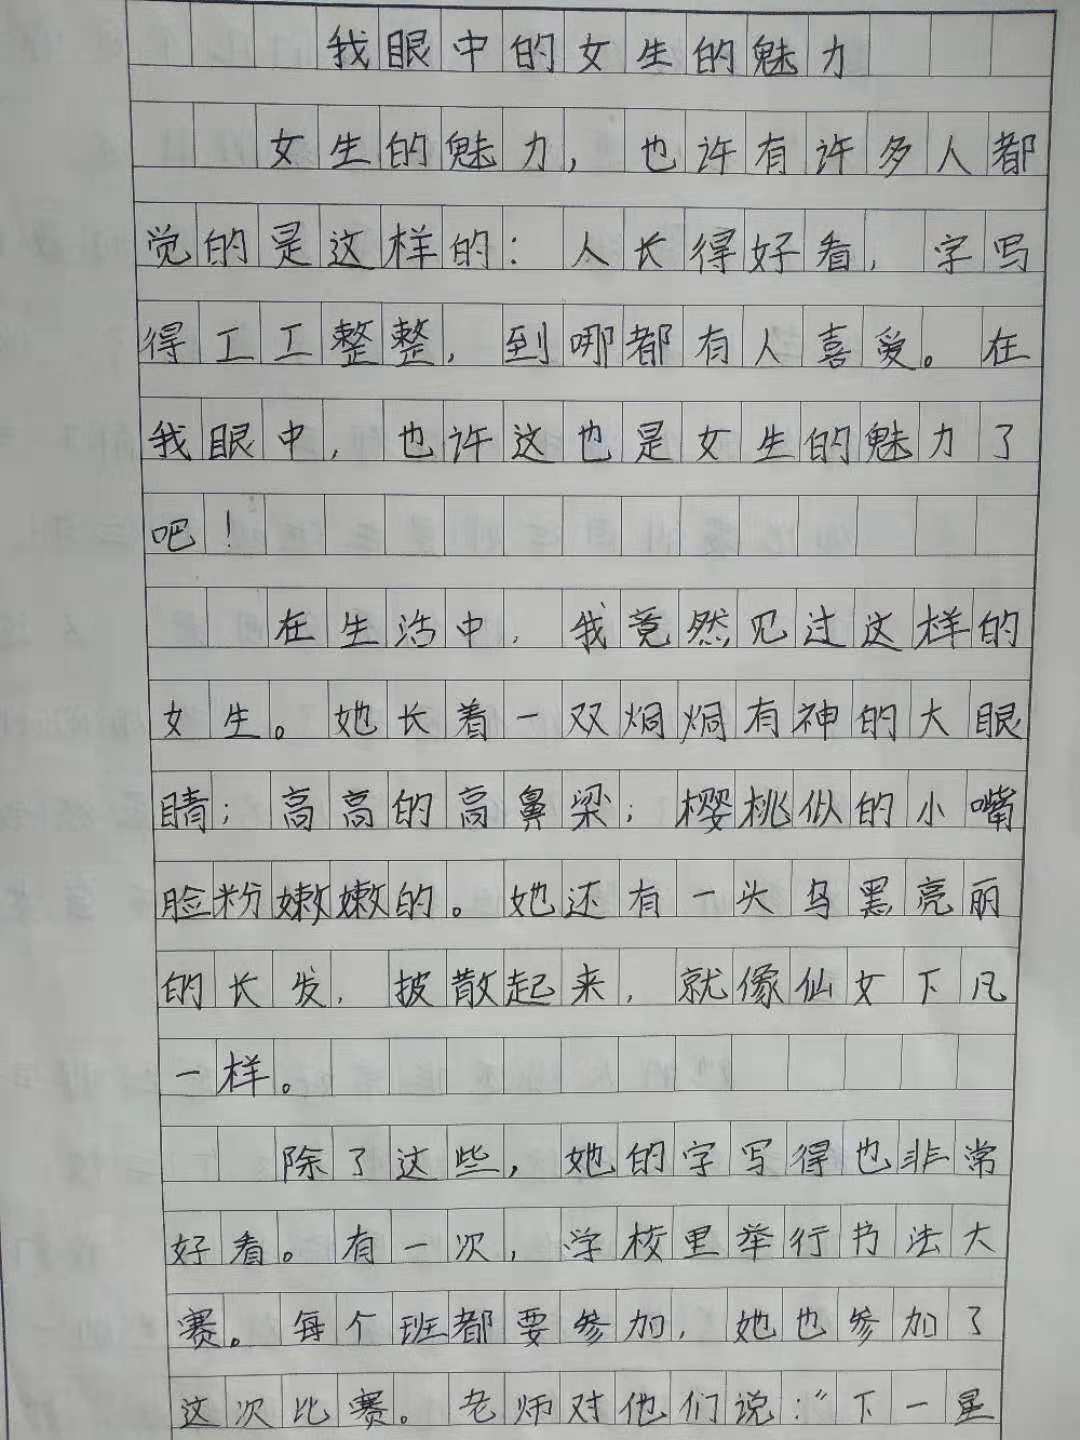 我眼中的女生的魅力
女生的魅力，也许有许多人都
觉的是这样的：人长得好看，字写
得工工整整，到哪都有人喜爱。在
我眼中，也许这也是女生的魅力了
吧！
在生活中，我竟然见过这样的
女生。她长着一双炯炯有神的大眼
睛；高高的高鼻梁；樱桃似的小嘴
脸粉嫩嫩的。她还有一头乌黑亮丽
的长发，披散起来，就像仙女下凡
一样。
除了这些，她的字写得也非常
好看。有一次，学校里举行书法大
赛。每个班都要参加，她也参加了
这次比赛。老师对他们说：“下一星